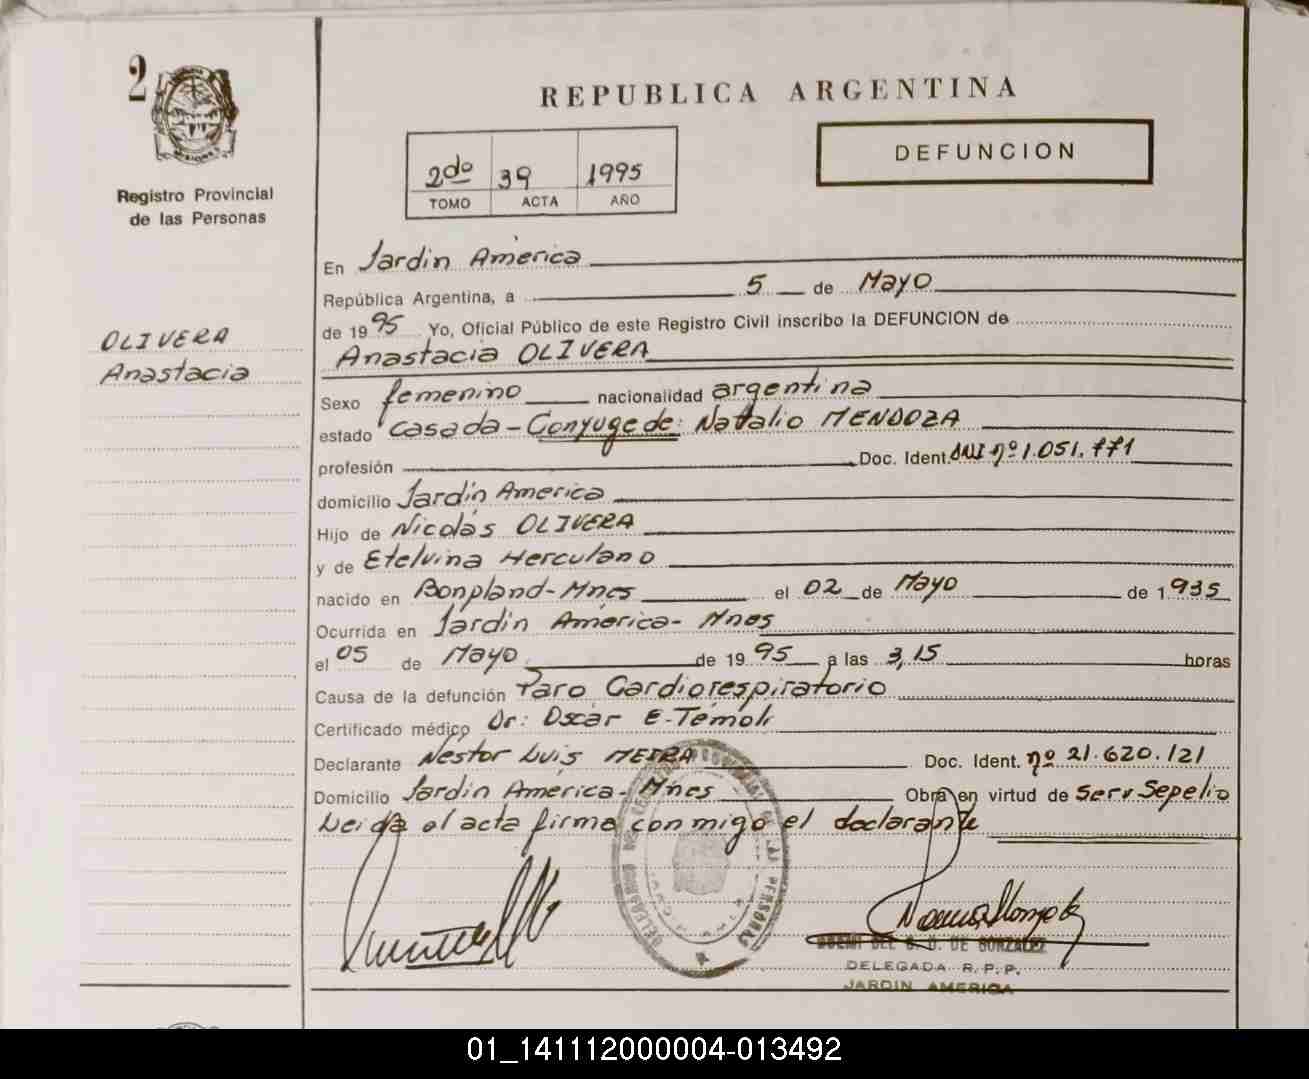 2
Registro Provincial
de las Personas
OLIVERA
Anastacia
REPUBLICA ARGENTINA
2do 39 1995
TOMO ACTA AÑO
DEFUNCION
En Jardín América
República Argentina, a 5 de Mayo
de 1995 Yo, Oficial Público de este Registro Civil inscribo la DEFUNCION de
Anastacia OLIVERA
Sexo femenino nacionalidad argentina
estado casada - Conyuge de: Natalio MENDOZA
profesión Doc. Ident. DNI nº 1.051.771
domicilio Jardín America
Hijo de Nicolás OLIVERA
y de Etelvina Herculano
nacido en Bonpland - Mnes el 02 de Mayo de 1935
Ocurrida en Jardín América - Mnes
el 05 de Mayo de 1995 a las 3,15 horas
Causa de la defunción Paro Cardiorespiratorio
Certificado médico Dr: Oscar E. Témoli
Declarante Néstor Luis MEIRA Doc. Ident. nº 21.620.121
Domicilio Jardín América - Mnes Obra en virtud de Serv Sepelio
Leida el acta firma conmigo el declarante
DE GONZALEZ
DELEGADA R.P.P.
JARDIN AMERICA
01_141112000004-013492